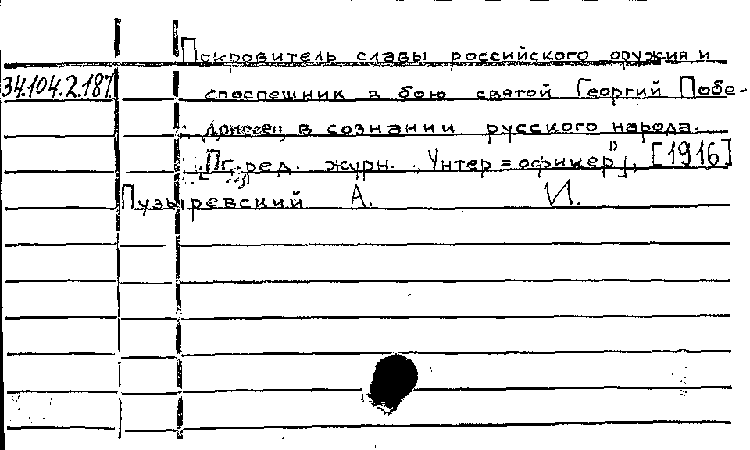 Покровитель славы российского оружия и
34.104.2.187 споспешник в бою святой Георгий Побе-
доносец в сознании русского народа.
[Пг. ред. журн. „Унтер=офицер"], [1916]
Пузыревский А. И.